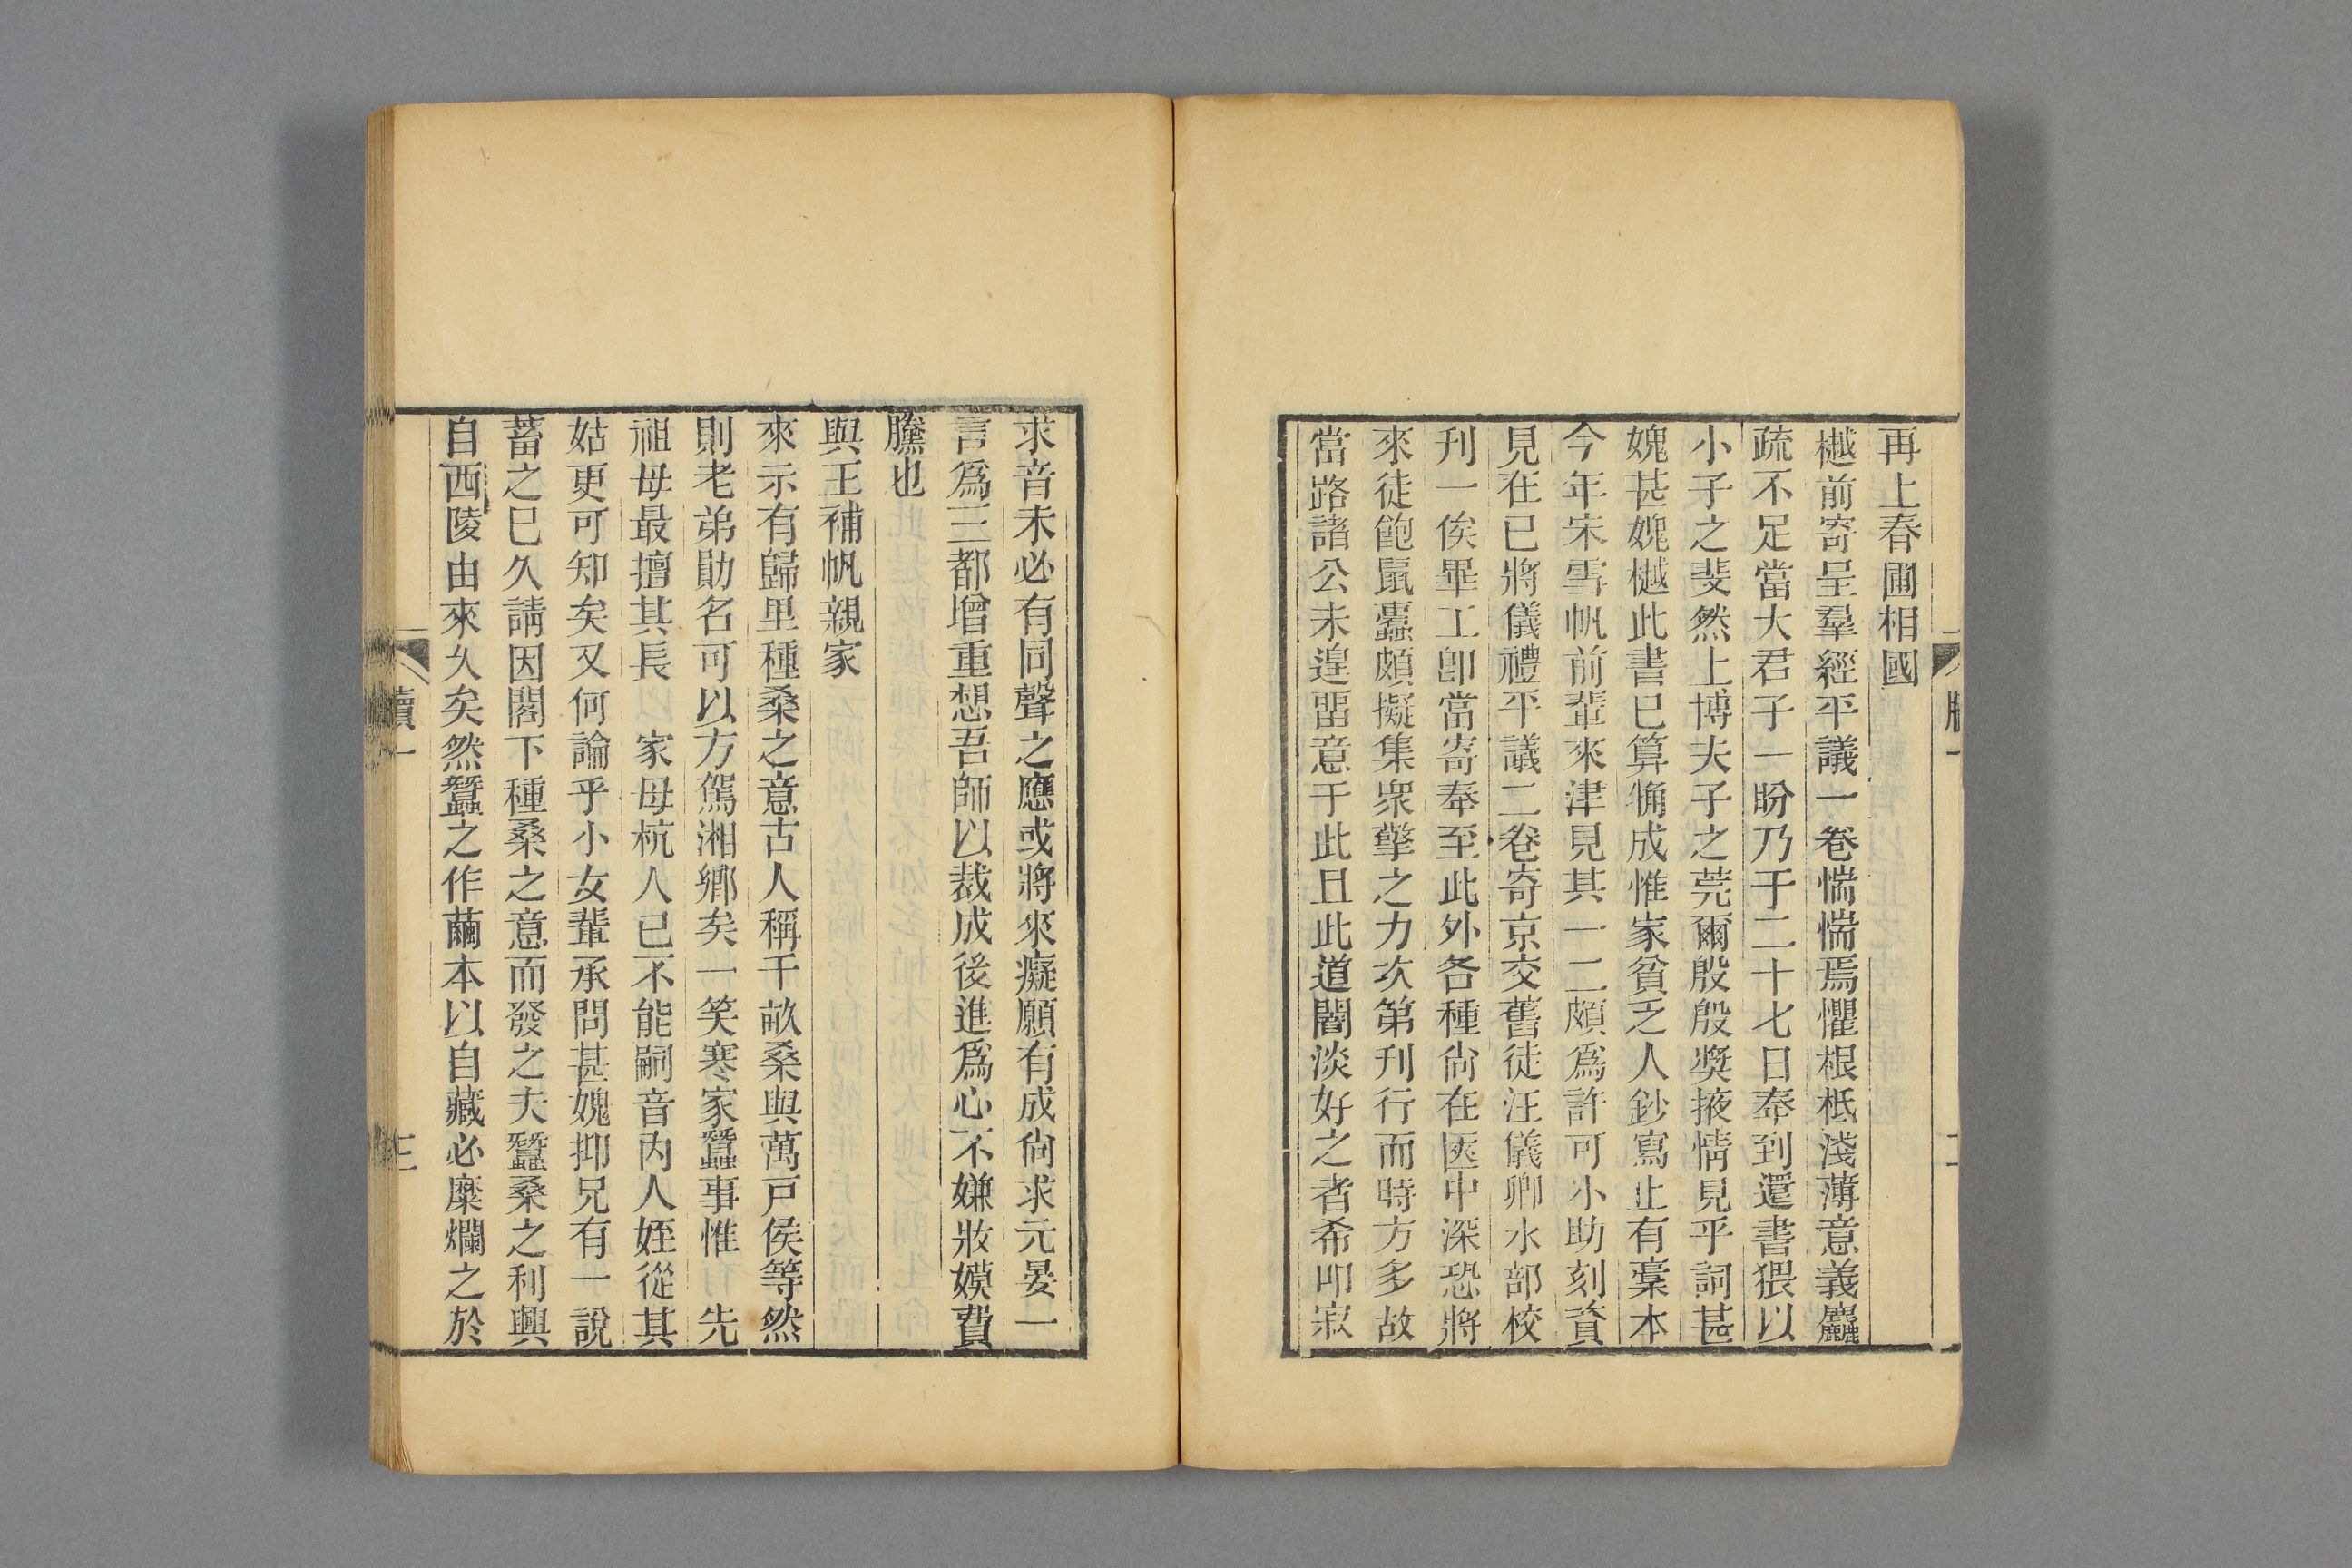 再上春圃相國
樾前寄呈羣經平議一卷惴惴焉懼根柢淺薄意義麤
疏不足當大君子一盼乃于二十七日奉到還書猥以
小子之斐然上博夫子之莞爾殷殷奬掖情見乎詞甚
媿甚媿樾此書已算觕成惟家貧乏人鈔寫止有藁本
今年宋雪帆前輩來津見其一二頗爲許可小助刻貲
見在已將儀禮平議二卷寄京交舊徒汪儀卿水部校
刊一俟畢工卽當寄奉至此外各種尙在匧中深恐將
來徒飽鼠蠹頗擬集衆擎之力次第刊行而時方多故
當路諸公未遑畱意于此且此道闇淡好之者希叩寂
求音未必有同聲之應或將來癡願有成尙求元晏一
言爲三都增重想吾師以裁成後進爲心不嫌妝嫫費
黱也
與王補帆親家
來示有歸里種桑之意古人稱千畝桑與萬戸侯等然
則老弟勛名可以方駕湘鄕矣一笑寒家蠶事惟 先
祖母最擅其長 家母杭人已不能嗣音內人姪從其
姑更可知矣又何論乎小女輩承問甚媿抑兄有一說
蓄之已久請因閣下種桑之意而發之夫蠶桑之利興
自西陵由來久矣然蠶之作繭本以自藏必糜爛之於
牘一
三